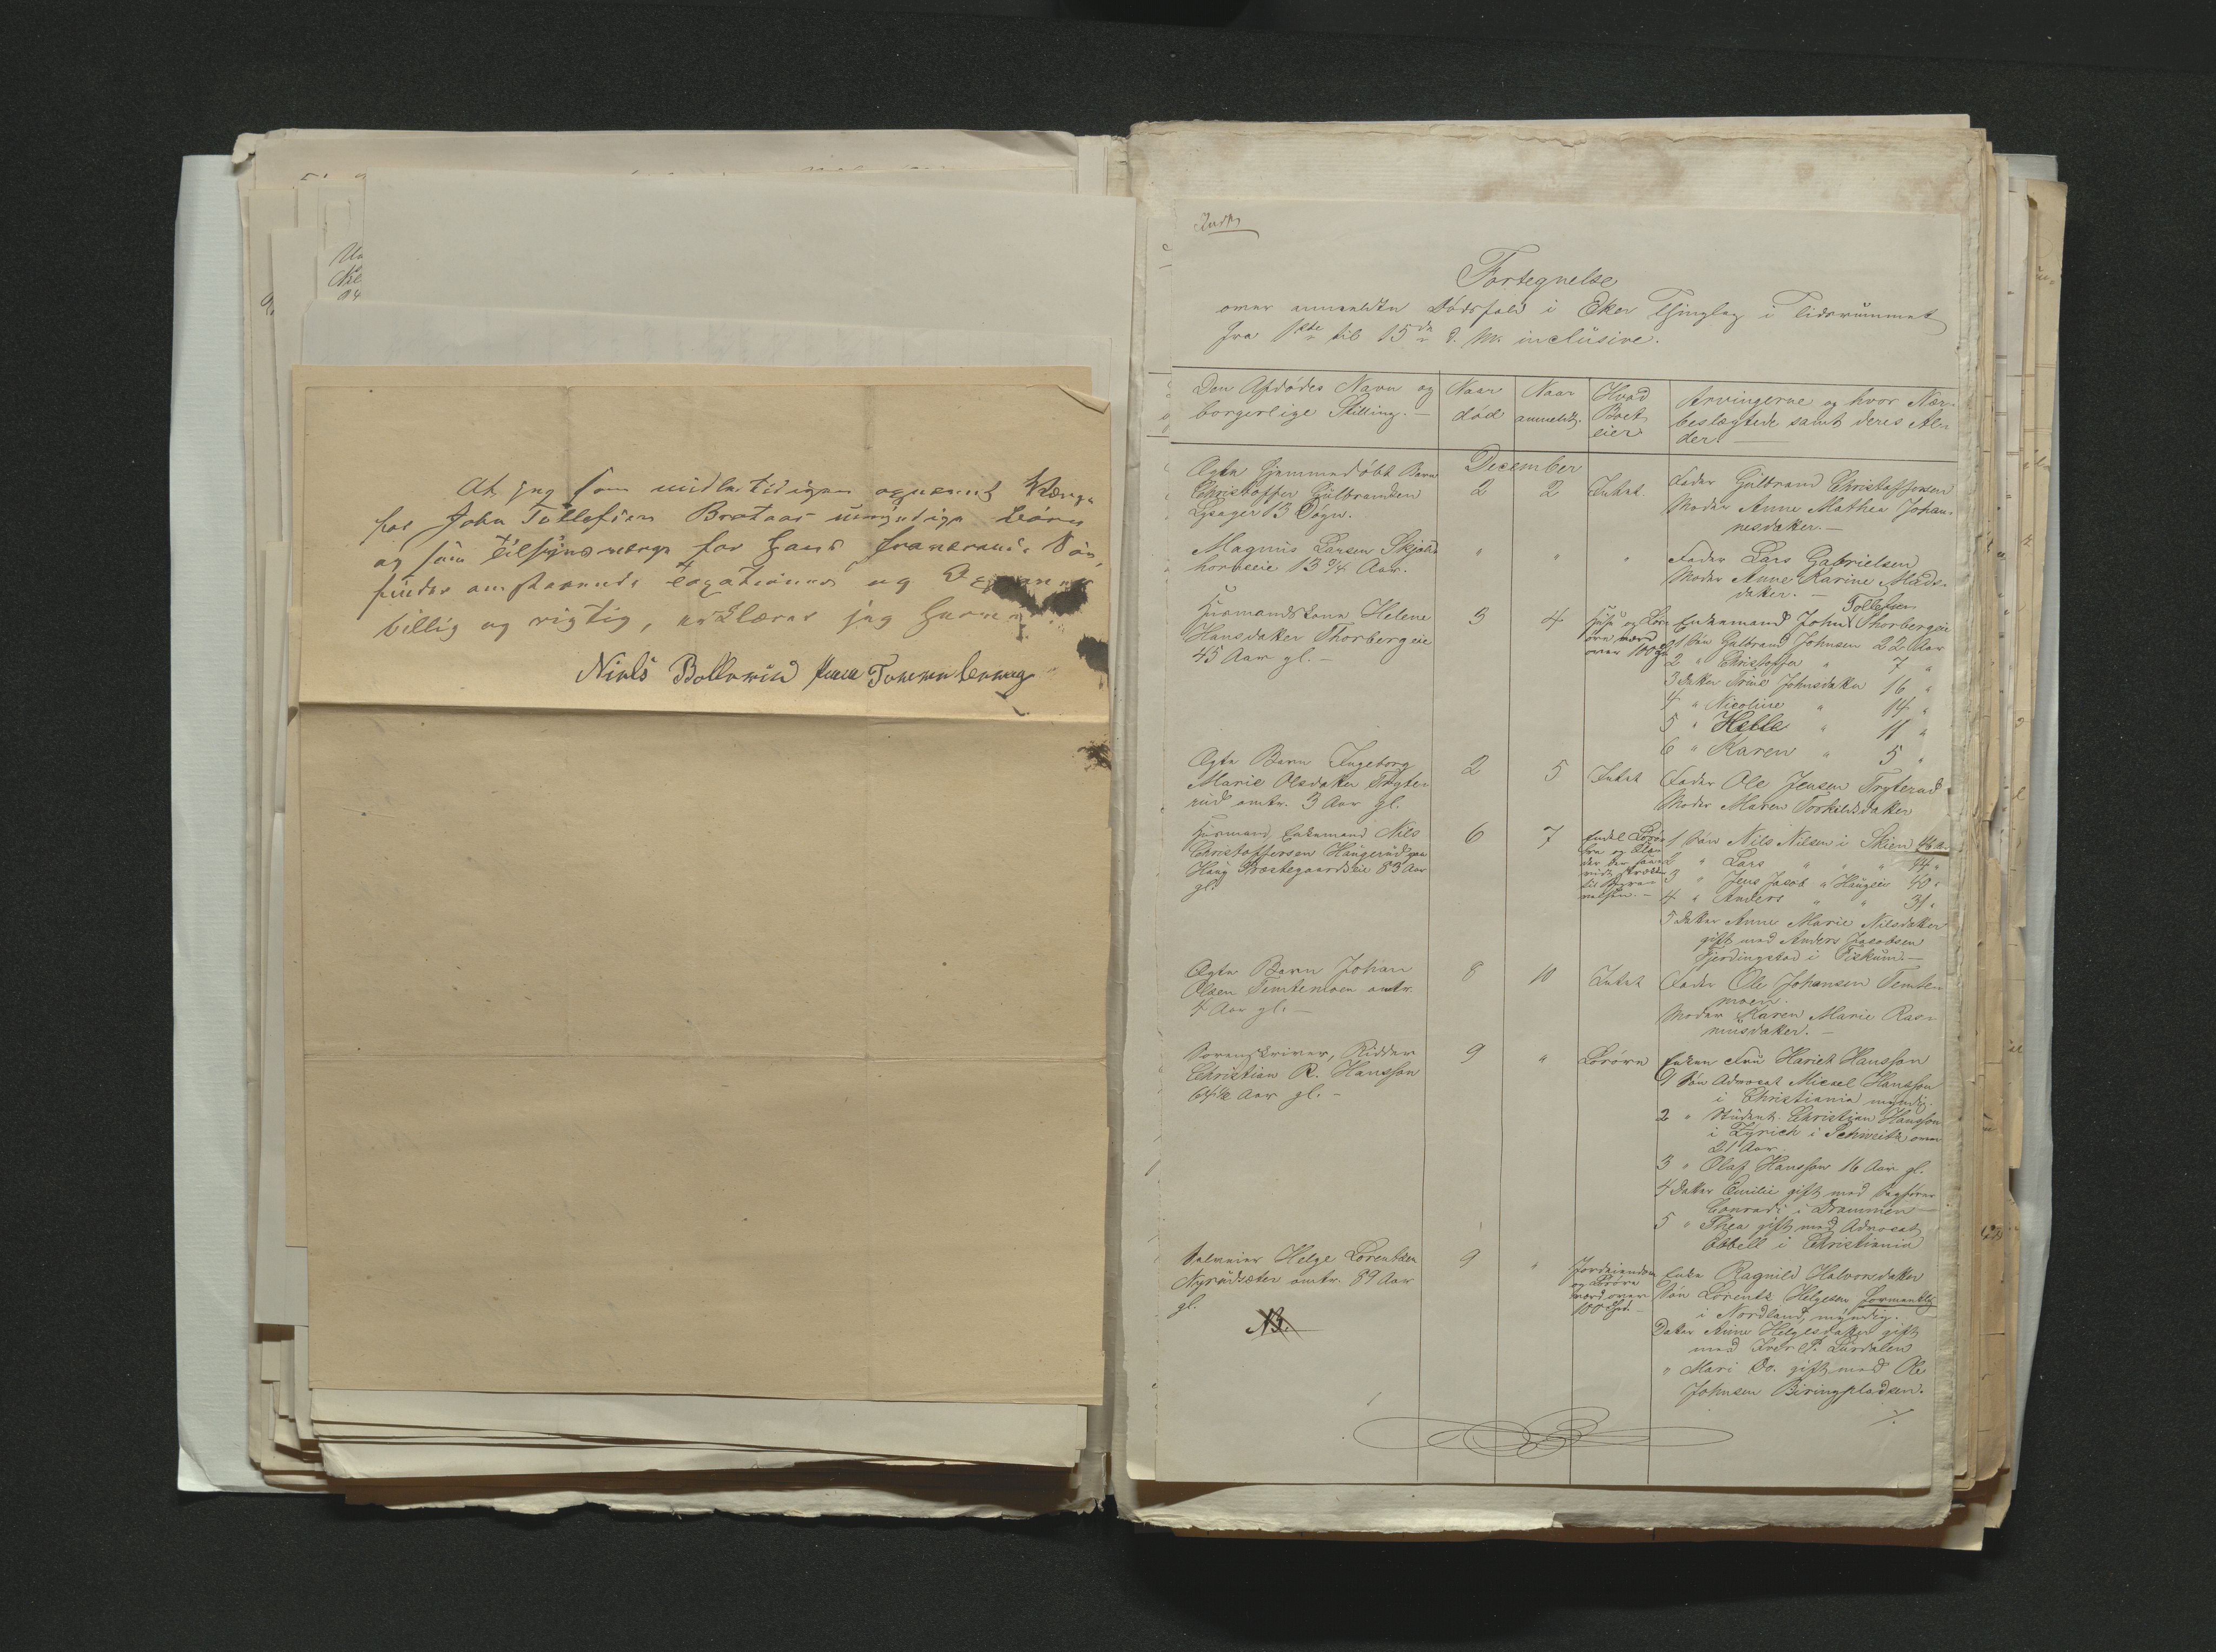 At jeg som midlertidigen opnævnt Værge
for John Tollefsen Brataas umyndige Børn
og som Tilsynsværge for hans fraværende Søn,
finder anstaaende Taxationer og
billig og rigtig, erklæres jeg herved.
Niels Bollerud
Fortegnelse
over anmeldte Dødsfald i Eker Thinglag i Tidsrummet
fra 1ste til 15de d. M. inclusive.
Den Afdødes Navn og
borgerlige Stilling. —
Naar
død
Naar
anmeldt.
Hvad
Boet
eier
Arvingerne og hvor Nær-
beslægtede samt deres Al-
der.
December
Ægte hjemmedøbt Barn
Christoffer Gulbrandsen
Lysager 13 Døgn.
2
2
Intet.
Fader Gulbrand Christoffersen
Moder Anne Mathea Johan-
nesdatter. —
Magnus Larsen Skjøl-
13 3/4 Aar.
"
"
"
Fader Lars Gabrielsen
Moder Anne Karine Mads-
datter. —
Husmandskone Helene
Hansdatter Thorbergeie
45 Aar gl. —
3
4
Huse og Løs-
øre værd
over 100
Tollefsen
Enkemand John Thorbergeie
1 Søn Gulbrand Johnsen 22 Aar
2 " Christoffer " 7 "
3 Datter Trine Johnsdatter 16 "
4 " Nicoline " 14 "
5 " Helle " 11 "
6 " Karen " 5 "
Ægte Barn Ingeborg
Marie Olsdatter Tryte-
rud omtr. 3 Aar gl.
2
5
Intet
Fader Ole Jensen Tryterud
Moder Maren Torkildsdatter
Husmand, Enkemand Nils
Christoffersen Haugerud
Haug Præstegaardseie 83 Aar
gl.
6
7
Endel Løsø-
1 Søn Nils Nilsen i Skien
2 " Lars " " " 44 "
3 " Jens Jacob " Haugeie 40 "
4 " Anders " " 31 "
5 Datter Anne Marie Nilsdatter
gift med Anders Jacobsen
Gjerdingstad i Fiskum. —
Ægte Barn Johan
Olsen Temtemoen omtr.
4 Aar gl. —
8
10
Intet
Fader Ole Johansen Temte-
moen.
Moder Karen Marie Ras-
musdatter. —
Sorenskriver, Ridder
Christian R. Hansson
64 1/2 Aar gl. —
9
"
Løsøre
Enken Fru Hariet Hansson
1 Søn Advocat Micael Hansson
i Christiania myndig.
2 " Student Christian Hansson
i Zyrich i Schweitz over
21 Aar.
3 " Olaf Hansson 16 Aar gl.
4 Datter Emilie gift med Sagfører
Conradi i Drammen —
5 " Thea gift med Advocat
Ebbell i Christiania
Selveier Helge Lorentsen
Nyrudsæter omtr. 89 Aar
gl.
NB.
9
"
Jordeiendom
og Løsøre
værd over
100 Spd. —
Enke Ragnild Halvorsdatter
Søn Lorents Helgesen formentlig
i Nordland, myndig. —
Datter Anne Helgesdatter gift
med Iver P. Lurdalen
" Mari Do. gift med Ole
Johnsen Biringpladsen.